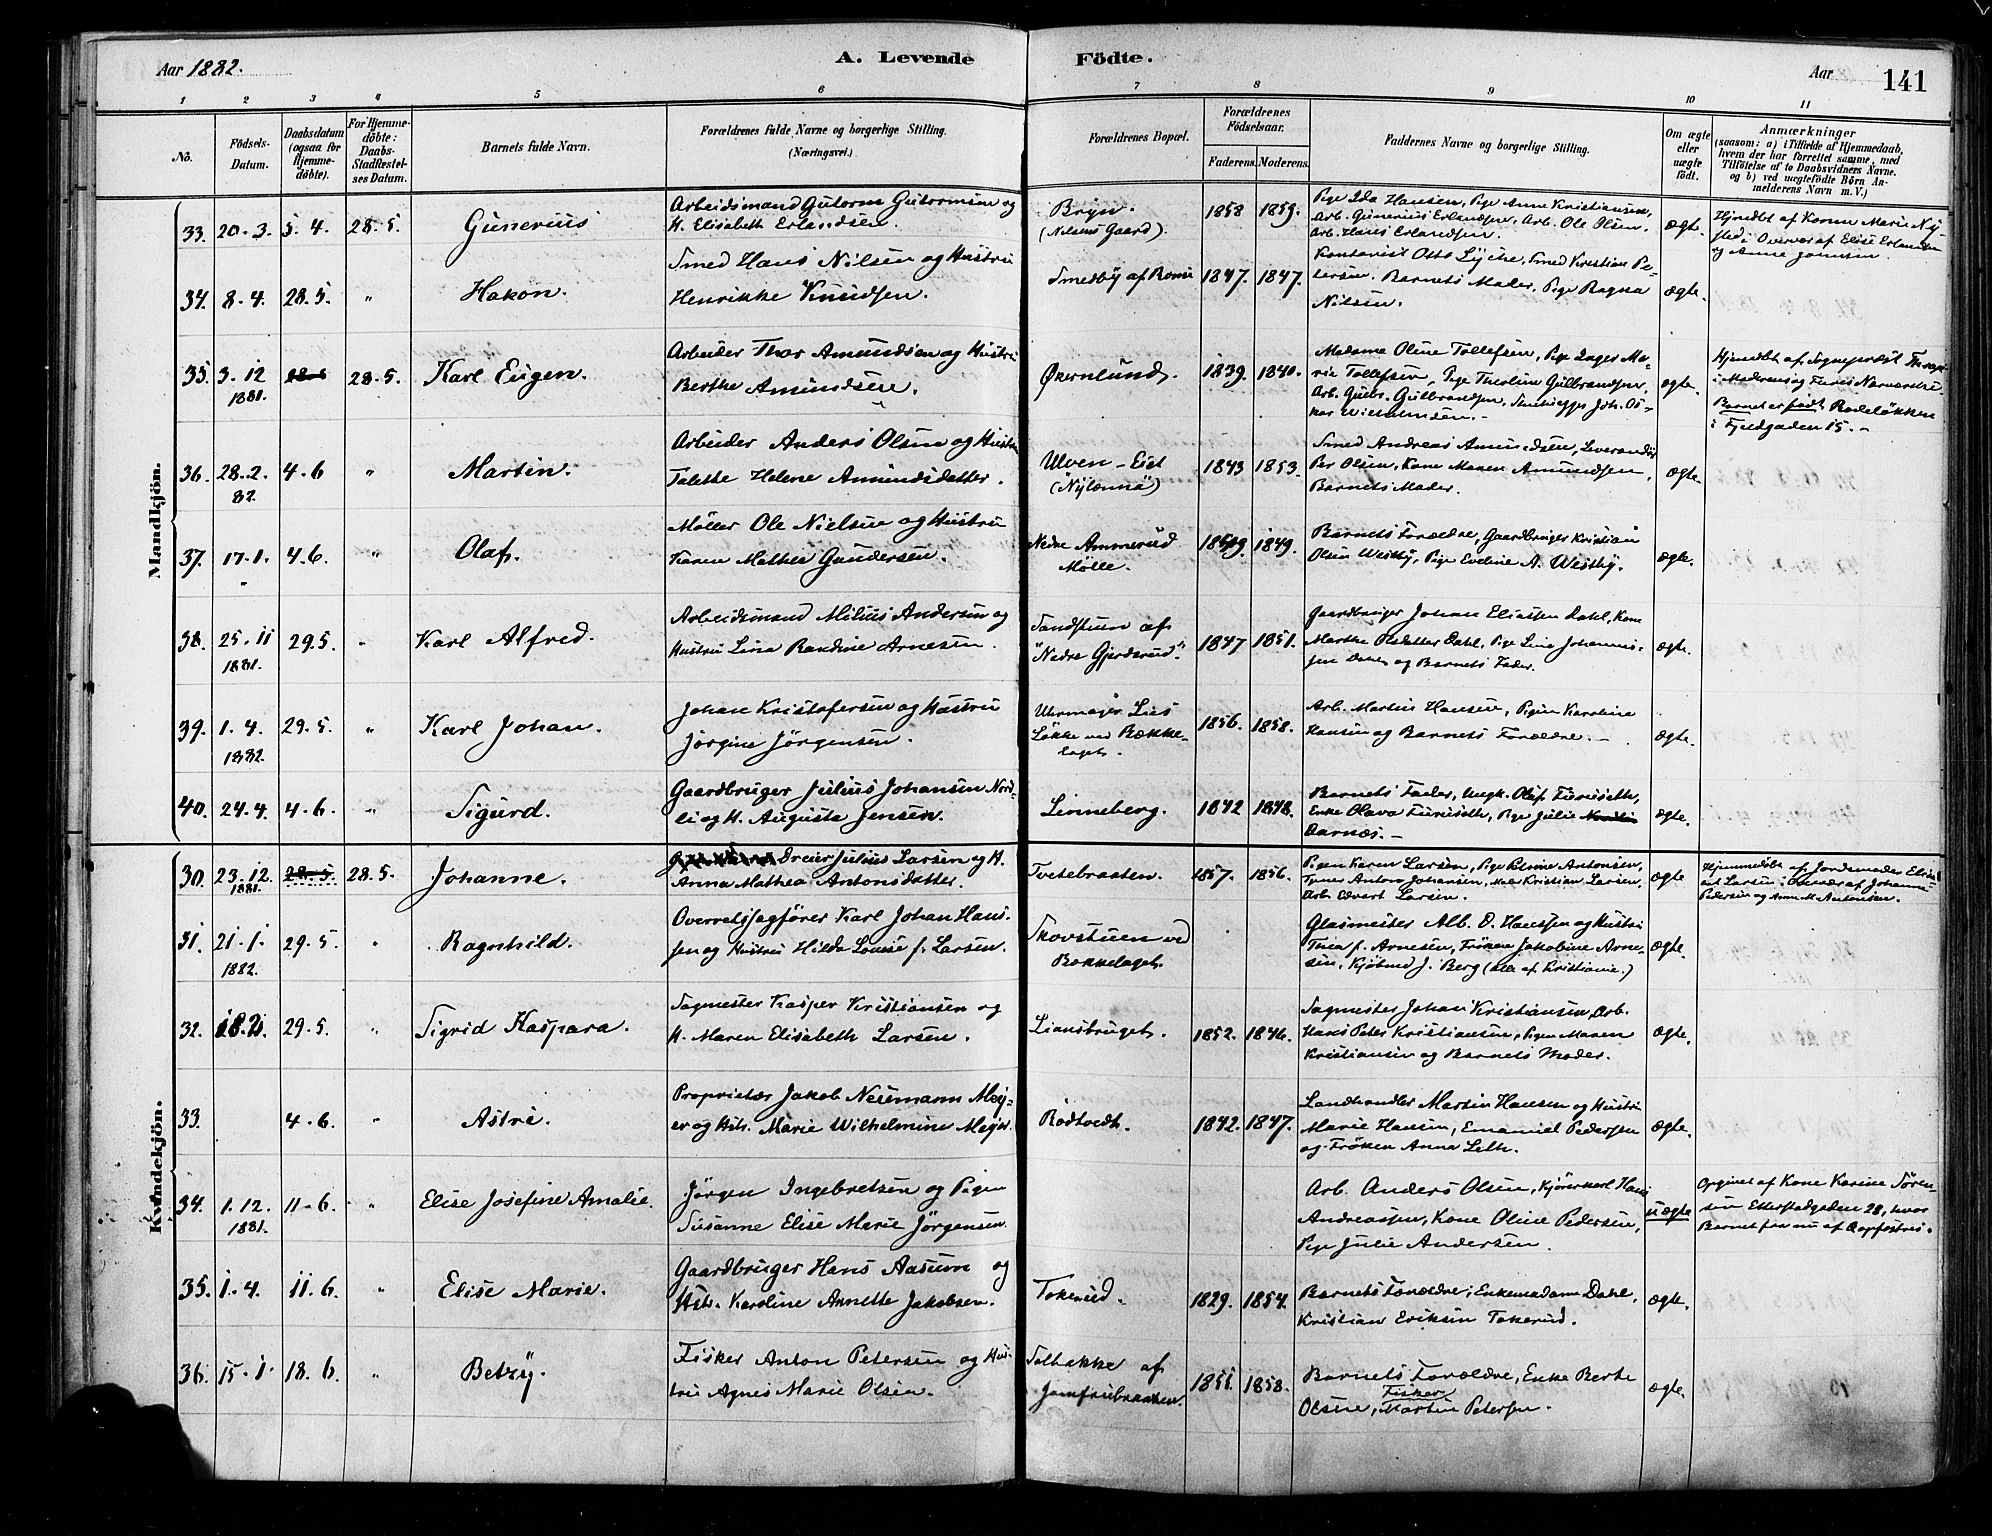 Aar 1882.
A. Levende Födte.
Aar
141
1 2 3 4 5 6 7 8 9 10 11
No.
Födsels-Datum.
Daabsdatum (ogsaa for Hjemme-döbte).
For Hjemme-döbte: Daabs-Stadfæstel-ses Datum.
Barnets fulde Navn.
Forældrenes fulde Navne og borgerlige Stilling. (Næringsvei.)
Forældrenes Bopæl.
Forældrenes Födselsaar.
Faderens. Moderens.
Faddernes Navne og borgerlige Stilling.
Om ægte eller uægte födt.
Anmærkninger (saasom: a) i Tilfælde af Hjemmedaab, hvem der har forrettet samme, med Tilföielse af to Daabsvidners Navne, og b) ved uægtefödte Börn An-melderens Navn m. V.)
Mandkjön.
33. 20-3. 5-4. 28-5. Gunerius
Arbeidsmand Gutorm Gutormsen og
H. Elisabeth Erlandsen.
Bryn. (Nilsens Gaard).
1858 1859.
Pige Ida Hansen, Pige Anne Kristiansen,
Arb. Gunerius Erlandsen, Arb. Ole Olsen.
Arb. Hans Erlandsen.
ægte.
Hjmdbt af Konen Marie Ny-
sted i Overvær af Elise Erlandsen
og Anne Johnsen.
34. 8-4. 28.5. " Hakon.
Smed Hans Nilsen og Hustru
Henrikke Knudsen.
Smedby af
1847. 1847.
Kontorist Otto Lyche, Smed Kristian Pe-
tersen. Barnets Moder, Pige Ragna
Nilsen.
ægte.
35. 3-12 1881. 28-5 28-5. Karl Eugen.
Arbeider Thor Amundsen og Hustru
Berthe Amundsen.
Økernlund.
1839. 1840.
Madame Oline Tollefsen, Pige Inger Ma-
rie Tollefsen, Pige Theoline Gulbrandsen,
Arb. Gulbr. Gulbrandsen, Joh. Os-
kar Wilhelmsen.
ægte.
Hjmdbt af Sogneprest
i Moderens og Nærværelse.
Barnet er født, Rodeløkken
i Fjeldgaden 15.
36. 28-2. 82. 4-6 " Martin.
Arbeider Anders Olsen og Hustru
Talette Helene Amundsdatter.
Ulven-Eiet (Nylænna)
1843 1853.
Smed Andreas Amundsen, Leverandør
Per Olsen, Kone Maren Amundsen,
Barnets Moder.
ægte.
37. 17-1. " 4-6. " Olaf.
Møller Ole Nielsen og Hustru
Karen Mathea Gundersen.
Nedre Ammerud Mølle.
1849.
Barnets Forældre, Gaardbruger Kristian
Olsen Westby, Pige Eveline A. Westby.
ægte.
38. 25-11 1881. 29.5. " Karl Alfred.
Arbeidsmand Milius Andersen og
Hustru Lina Randine Arnesen.
Sandstuen af "Nedre Gjerdsrud".
1847 1851.
Gaardbruger Johan Eliassen Dahl, Kone
Marthe Olsdatter Dahl, Pige Line Johannes-
sen Dahl og Barnets Fader.
ægte.
39. 1-4. 1882. 29-5. " Karl Johan.
Johan Kristofersen og Hustru
Jørgine Jørgensen.
Uhrmager Lies Løkke ved Bække-laget.
1856. 1858.
Arb. Martin Hansen, Pigen Karoline
Hansen og Barnets Forældre.
ægte.
40. 24-4. 4-6. " Sigurd.
Gaardbruger Julius Johansen Nord-
li og H. Augusta Jensen.
Linneberg.
1842 1848.
Barnets Fader, Ungk. Olaf Furuseth,
Enke Olava Furuseth, Pige Julie
Darnæs.
ægte.
Kvindekjön.
30. 23-12. 1881. 28-5. 28-5. Johanne.
Dreier Julius Larsen og H.
Anna Mathea Antonsdatter.
Tvetebraaten.
1857. 1856.
Pigen Karen Larsen, Pige Petrine Antonsen,
Anton Johansen, Maler Kristian Larsen,
Arb. Edvart Larsen.
ægte
Hjemmedøbt af Jordemoder Elisa-
bet Larsen i Overvær af Johanne
Pedersen og Ann M. Antonsen.
31. 21-1. 1882. 29-5. " Ragnhild.
Overretssagfører Karl Johan Hans-
sen og Hustru Hilda Louise f. Larsen.
Skovstuen ved Bækkelaget.
Glasmester Alb. O. Hanssen og Hustru
Thea f. Arnesen, Frøken Jakobine Arne-
sen, Kjøbmd J. Berg (alle af Kristiania.)
ægte.
32. 29-5. " Sigrid Kaspara.
Sagmester Kasper Kristiansen og
H. Maren Elisabeth Larsen.
Liansbruget.
1852. 1846.
Sagmester Johan Kristiansen, Arb.
Hans Peter Kristiansen, Pigen Maren
Kristiansen og Barnets Moder.
ægte.
33. 4-6. " Astri.
Proprietær Jakob Neumann Mey-
er og Hstr. Marie Wilhelmine Meyer.
Rödtvedt.
1842. 1847.
Landhandler Martin Hansen og Hustru
Marie Hansen, Emanuel Pedersen
og Frøken Anna Leth.
ægte.
34. 1-12. 1881. 11-6. " Elise Josefine Amalie.
Jørgen Ingebretsen og Pigen
Susanne Elise Marie Jørgensen.
Arb. Anders Olsen, Kjørerkarl Hans
Andreassen, Kone Oline Pedersen,
Pige Julie Andersen.
uægte
Opgivet af Kone Karine Søren-
sen Etterstadgaden 28, hvor
Barnet fra nu af opfostres.
35. 1-4. 11.6. " Elise Marie.
Gaardbruger Hans Aasum og
Hstr. Karoline Annette Jakobsen.
Tokerud.
1829. 1854.
Barnets Forældre, Enkemadame Dahl,
Kristian Eriksen Tokerud.
ægte.
36. 15-1. 18-6. " Betzy.
Fisker Anton Petersen og Hus-
tru Agnes Marie Olsen.
Solbakke af Jomfrubraaten.
1851. 1858.
Barnets Forældre, Enke Berte
Olsen, Fisker Martin Petersen.
ægte.